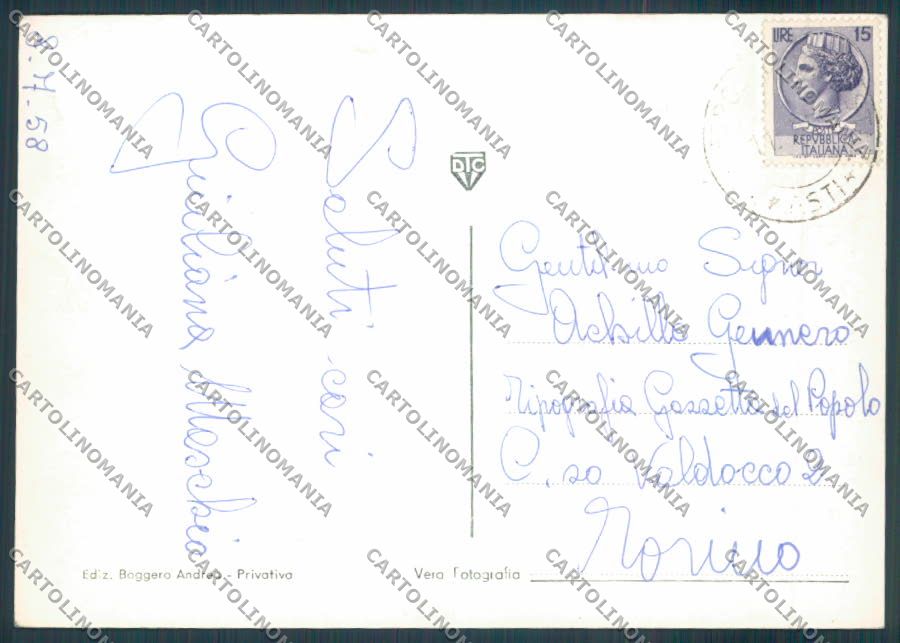 8-7-58
Saluti cari
Giuliana Meschia
DTC
LIRE 15
REPVBBLICA
ITALIANA
ASTI
Gentilissimo Signor
Achille Gennero
Tipografia Gazzetta del Popolo
C.so Valdocco 2
Torino
Ediz. Boggero Andrea - Privativa
Vera Fotografia
CARTOLINOMANIA